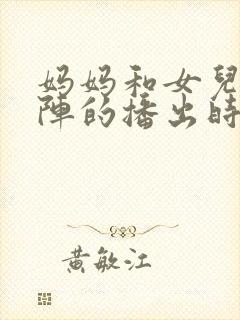 妈妈和女兒
陣的播出時
黄敏江